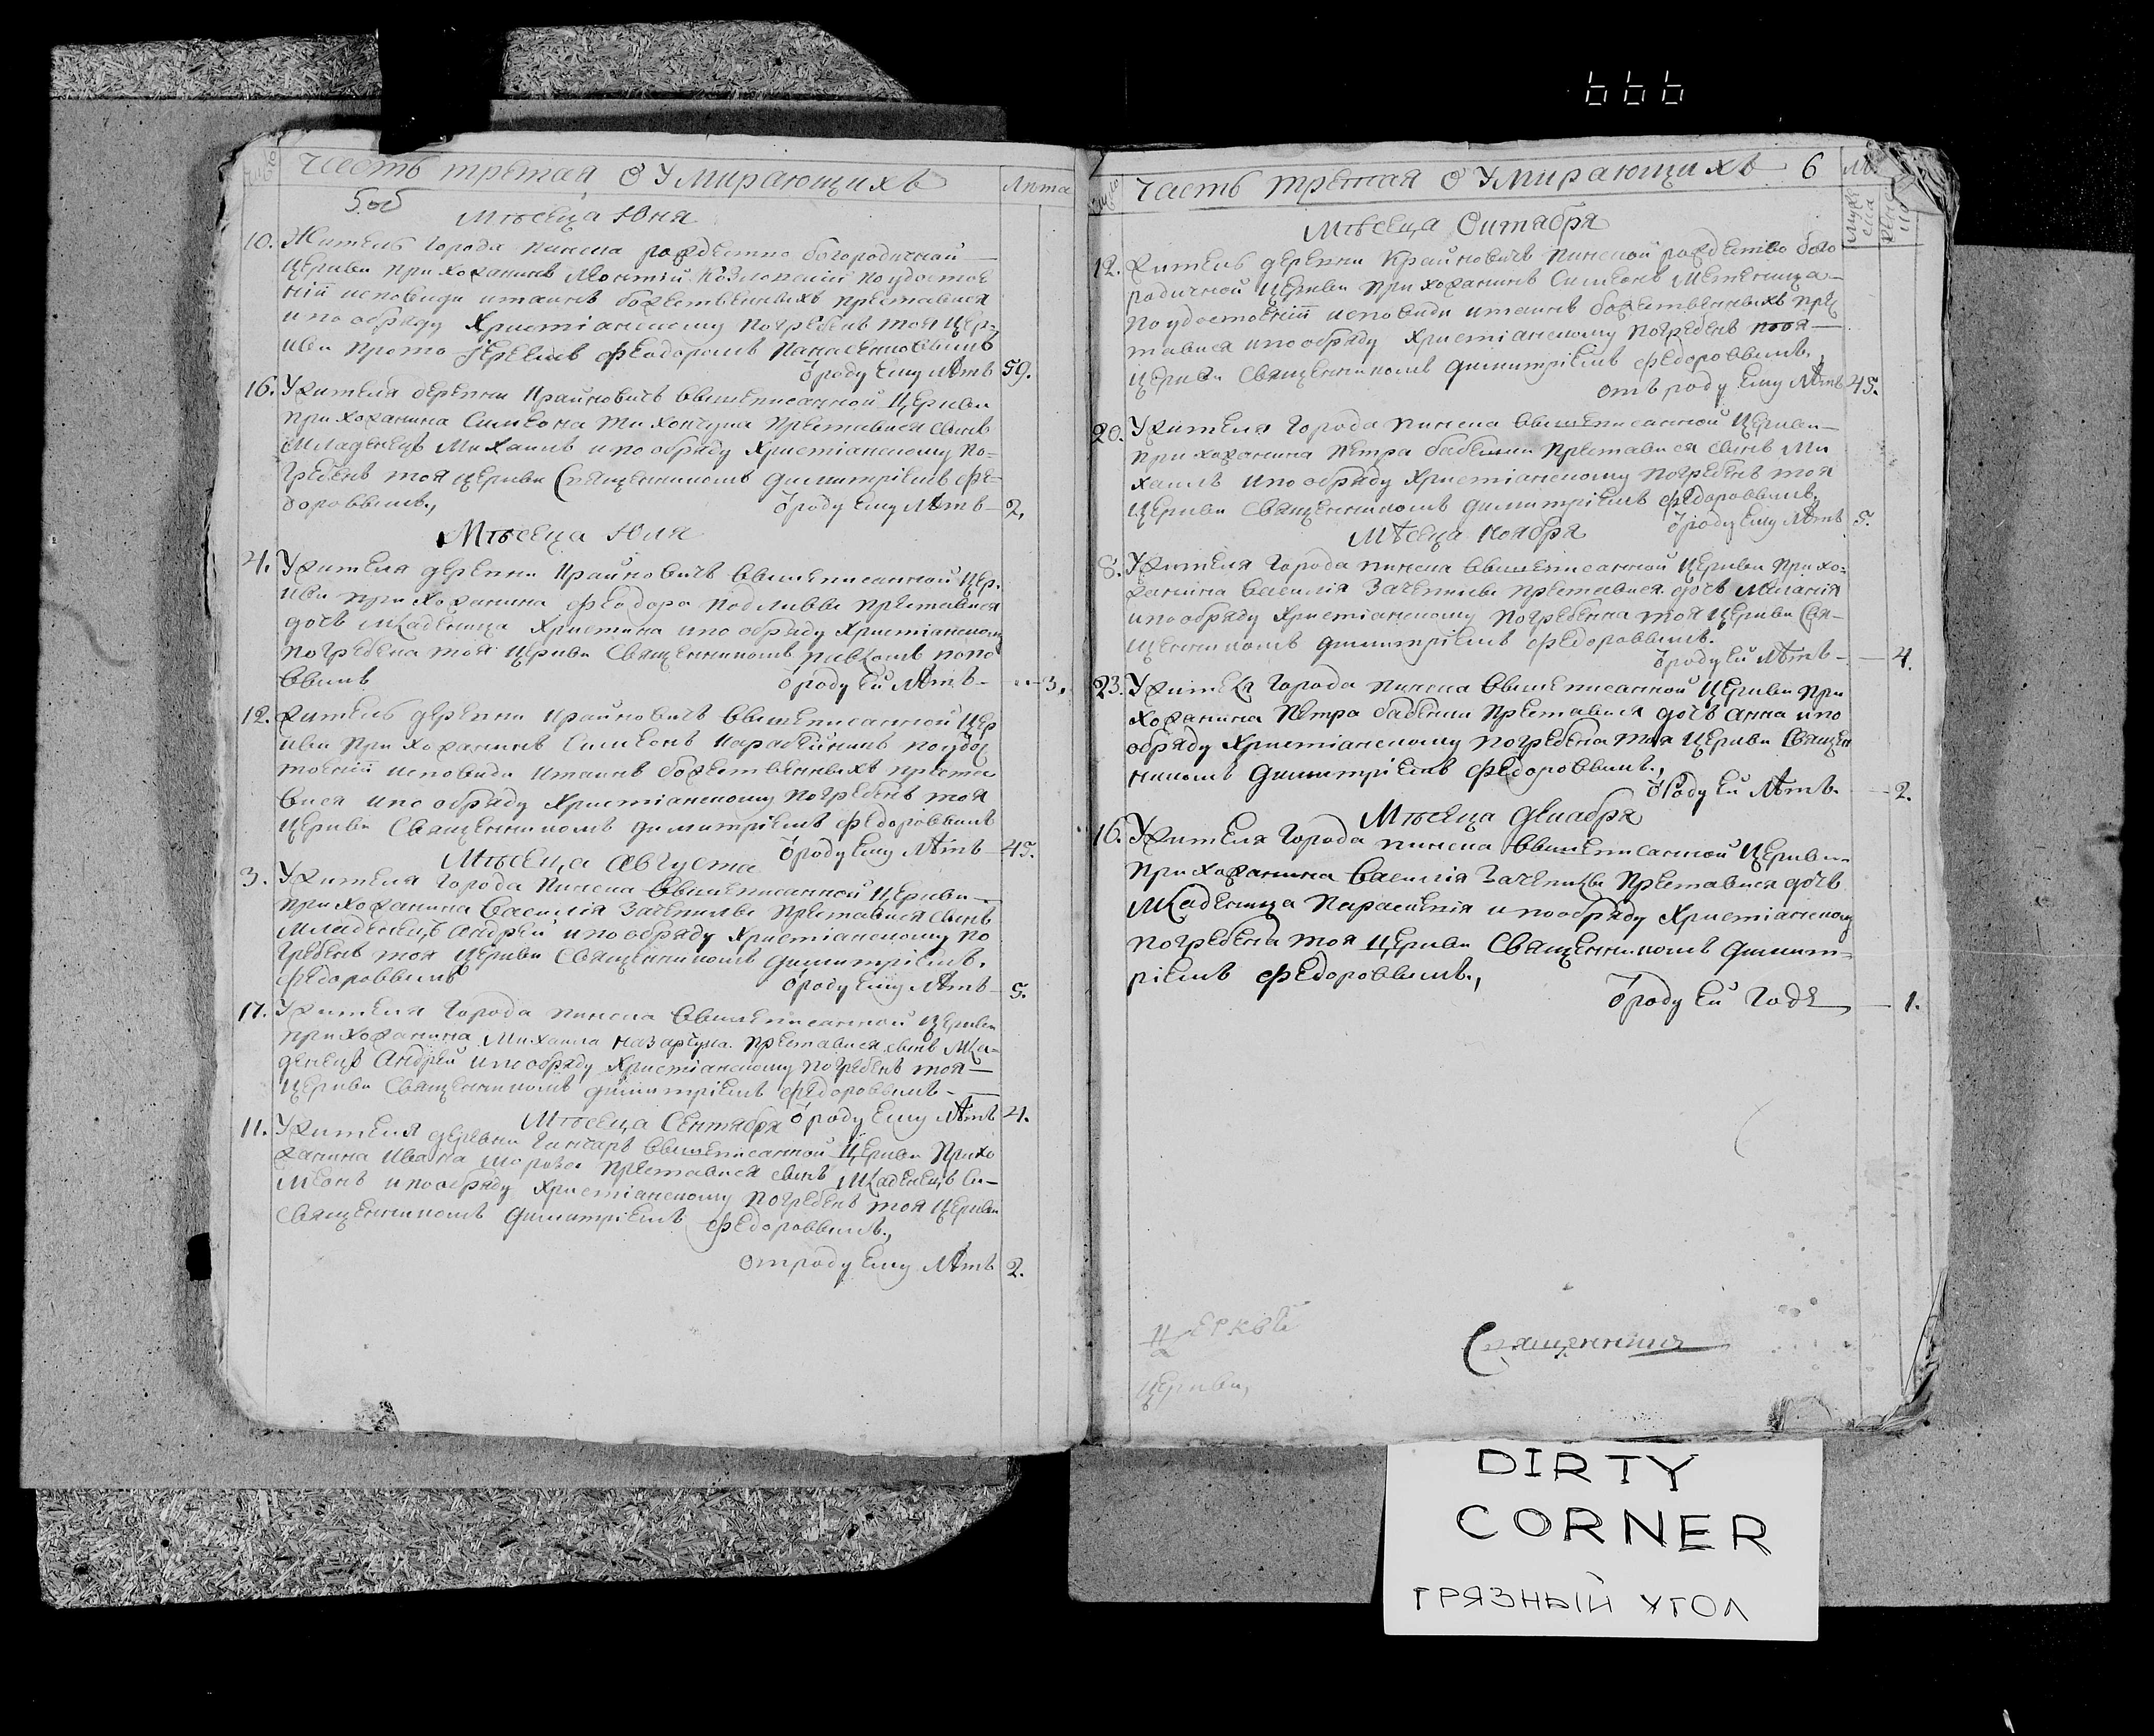 666
Число
Часть третая О Умирающихъ
Лѣта
5 об
Мѣсеца Юня
10. Житель города Пинска рождестно богородичной
Церкви прихожанинъ по удостое
нiи исповѣди и таинъ божественныхъ преставися
и по обряду Христiанскому погребенъ тоя Цер-
кви прото Iереемъ Феодоромъ
о роду ему Лѣтъ 59.
16. У жителя деревни Крайновичъ вышеписанной Церкви
прихожанина Симеона Тихончука преставися сынъ
младенецъ Михаилъ и по обряду Христiанскому по-
гребенъ тоя церкви Священникомъ Димитрiемъ Фе-
доровымъ., о роду ему Лѣтъ 2.
Мѣсеца Юля
4. У жителя деревни Крайновичъ вышеписанной Цер-
кви прихожанина Феодора преставися
дочъ младеница Христина и по обряду Христiанскому
погребена тоя Церкви Священникомъ Павломъ попо
вымъ о роду ей Лѣтъ 3.
12. Житель деревни Крайновичъ вышеписанной Цер
кви прихожанинъ Симеонъ по удос
тоенiи исповѣди и таинъ божественныхъ преста
вися и по обряду Христiанскому погребенъ тоя
Церкви Священникомъ Димитрiемъ Федоровымъ
о роду ему Лѣтъ 45.
Мѣсеца Августа
3. У жителя города Пинска вышеписанной Церкви
прихожанина Василiя преставися сынъ
младенецъ Андрей и по обряду Христiанскому по
гребенъ тоя Церкви Священникомъ Димитрiемъ.
Федоровымъ о роду ему Лѣтъ 5.
17. У жителя города Пинска вышеписанной Церкви
прихожанина Михаила Назарчука преставися сынъ мла-
денецъ Андрей и по обряду Христiанскому погребенъ тоя
Церкви Священникомъ Димитрiемъ Федоровымъ
о роду ему Лѣтъ 4.
Мѣсеца Сентября
11. У жителя деревни Гончаръ вышеписанной Церкви прихо
жанина Ивана преставися сынъ младенецъ Си-
меонъ и по обряду Христiанскому погребенъ тоя Церкви
Священникомъ Димитрiемъ Федоровымъ.,
от роду ему Лѣтъ 2.
Число
Часть третая О Умирающихъ 6
Мѣсеца Октабря
12. Житель деревни Крайновичъ Пинской рождество бого
родичной Церкви прихожанинъ Симеонъ
по удостоенiи исповѣди и таинъ божественныхъ прес
тавися и по обряду Христiанскому погребенъ тоя
Церкви Священникомъ Димитрiемъ Федоровымъ.,
отъ роду ему Лѣтъ 45.
20. У жителя города Пинска вышеписанной Церкви
прихожанина Петра преставися сынъ Ми
хаилъ и по обряду Христiанскому погребенъ тоя
Церкви Священникомъ Димитрiемъ Федоровымъ.
о роду ему Лѣтъ 5.
Мѣсеца Ноября
8. У жителя города Пинска вышеписанной Церкви прихо-
жанина Василiя преставися дочъ Меланiя
и по обряду Христiанскому погребенна тоя Церкви Свя-
щенникомъ Димитрiемъ Федоровымъ.
о роду ей Лѣтъ 4.
23. У жителя города Пинска вышеписанной Церкви при
хожанина Петра преставися дочъ Анна и по
обряду Христiанскому погребена тоя Церкви Священ
никомъ Димитрiемъ Федоровымъ.,
о роду ей Лѣтъ 2.
Мѣсеца Декабря
16. У жителя города Пинска вышеписанной Церкви
прихожанина Василiя преставися дочъ
младеница Параскевiя и по обряду Христiанскому
погребена тоя Церкви Священникомъ Димит-
рiемъ Федоровымъ.,
о роду ей Годъ 1.
церкви
Священникъ
Церкви,
DIRTY
CORNER
ГРЯЗНЫЙ УГОЛ